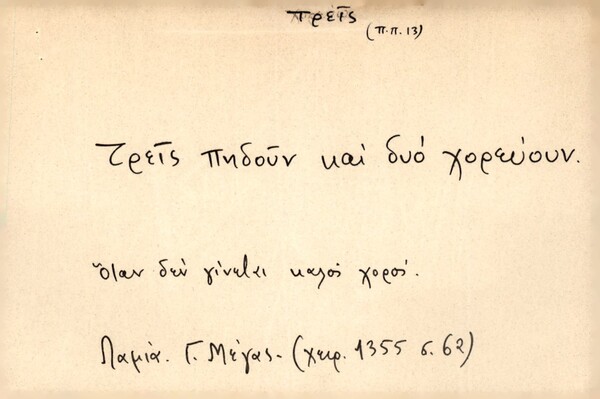 τρεῖς
(π.π. 13)
Τρεῖς πηδοῦν καὶ δυό χορεύουν.
Ὅταν δεν γίνεται καλός χορός.
Λαμία. Γ. Μέγας. (χειρ. 1355 σ. 62)